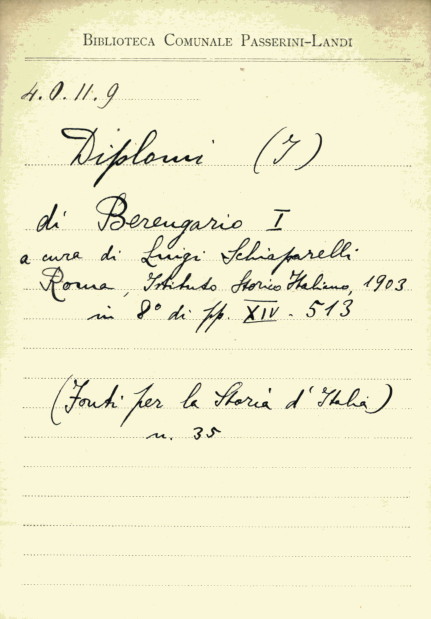 BIBLIOTECA COMUNALE PASSERINI-LANDI
4.0.11.9
Diplomi (I)
di Berengario I
a cura di Luigi Schiaparelli
Roma, Istituto Storico Italiano, 1903
in 8° di pp. XIV - 513
(Fonti per la Storia d'Italia)
n. 35